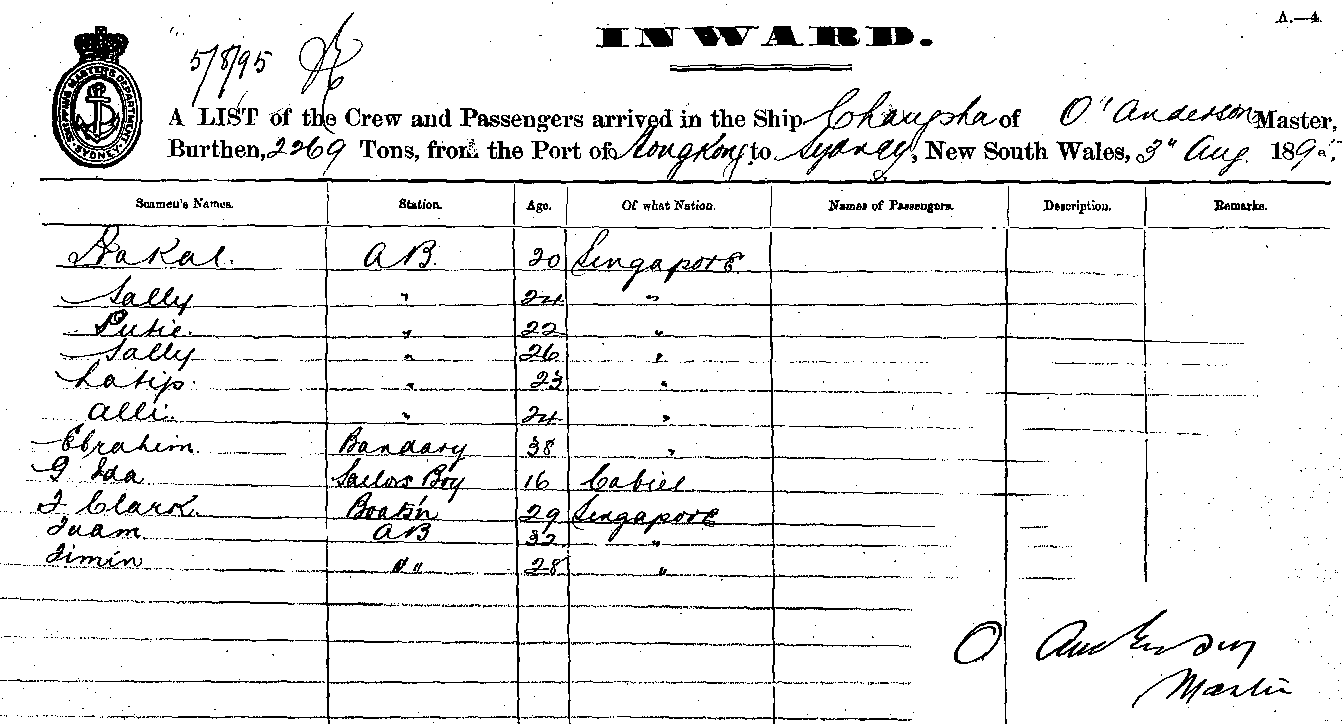 A.—4.
INWARD.
5/8/95
SHIPPING MASTERS DEPARTMENT SYDNEY
A LIST of the Crew and Passengers arrived in the Ship Changsha of O. Anderson Master,
Burthen, 2269 Tons, from the Port of Hongkong to Sydney, New South Wales, 3" Aug 1895.
Seamen's Names. Station. Age. Of what Nation. Names of Passengers. Description. Remarks.
AB. 20 Singapore
Sally " 24 "
Putie. " 22 "
Sally " 26 "
Latip. " 23 "
Alli. " 24 "
Ebrahim. Bandary 38 "
G Ida Sailors Boy 16
F Clark. Boats'n 29 Singapore
Tuam AB 32 "
Timin " " 28 "
O Anderson
Master